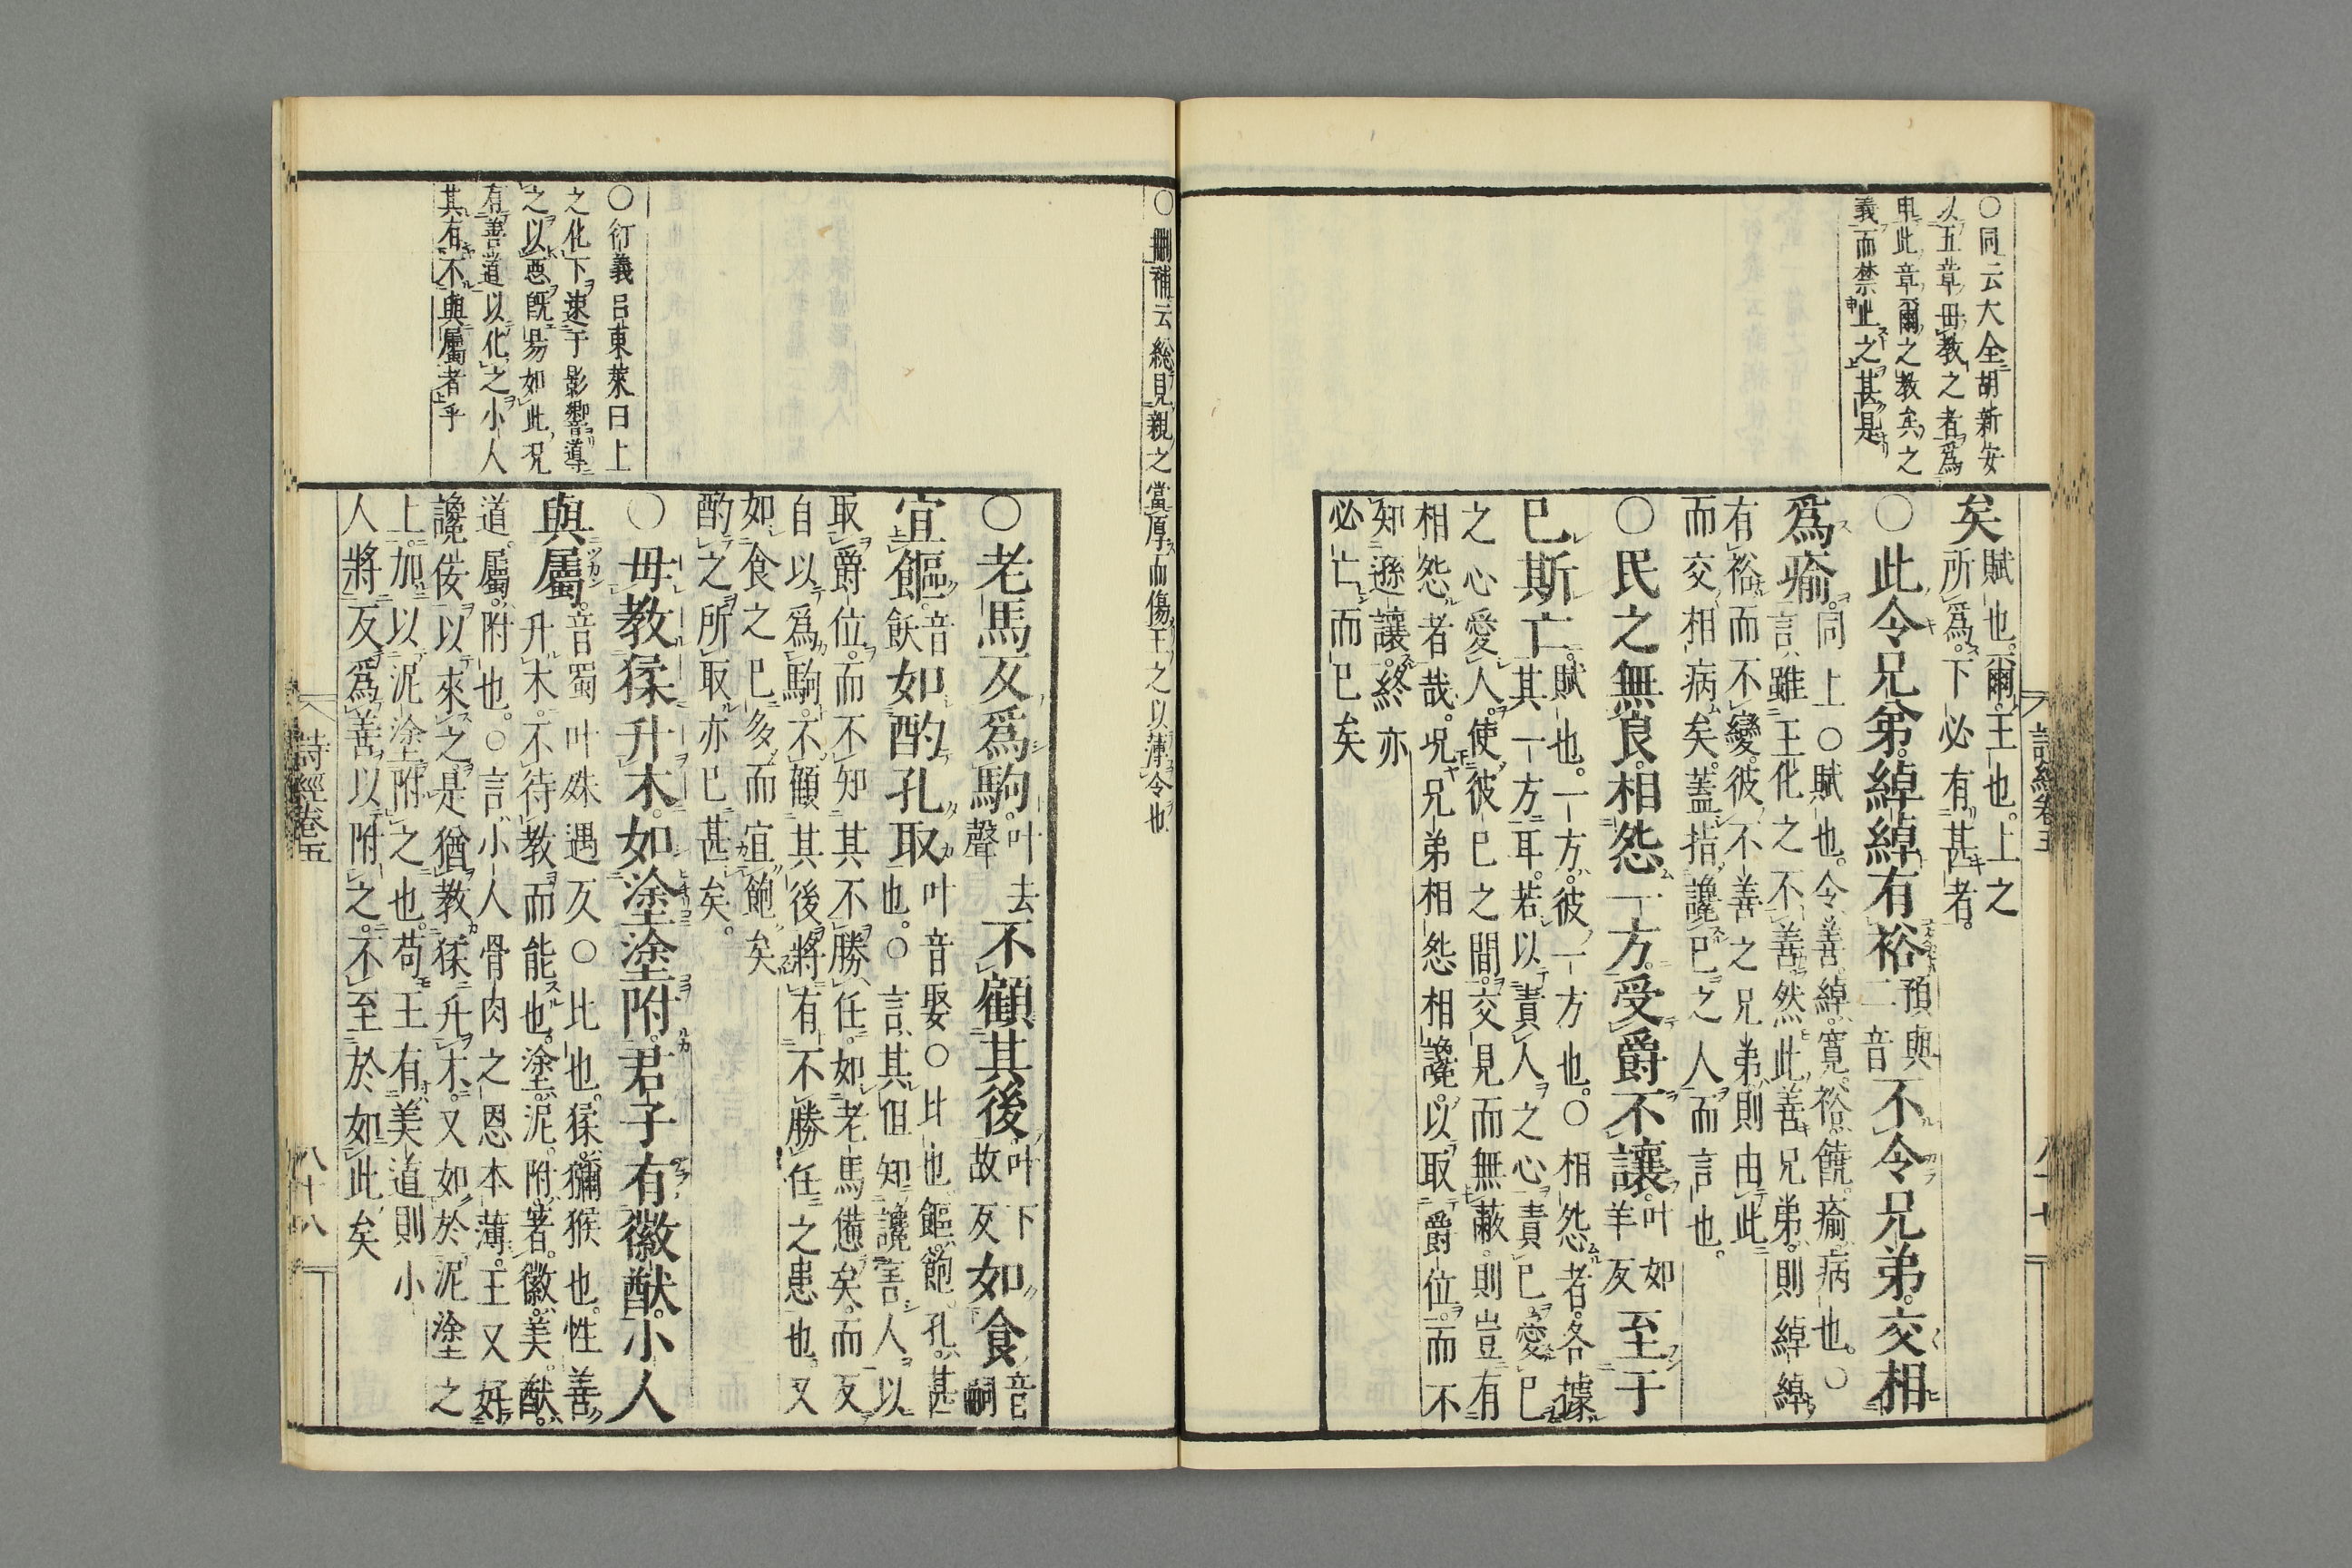 ○同云大全胡新安
以五章毋教之者爲
申此章爾之教矣之
義而禁止之甚是
詩經卷五
矣賦也。爾。王也。上之
所爲。下必有甚者。
○此令兄弟。綽綽有裕預與二音不令兄弟。交相
爲瘉。同上○賦也。令。善。綽。寬。裕。饒。瘉。病也。○
言雖王化之不善。然此善兄弟。則綽綽
有裕而不變。彼不善之兄弟。則由此
而交相病矣。蓋指讒已之人而言也。
○民之無良。相怨一方。受爵不讓。叶如羊反至于
已斯亡。賦也。一方。彼一方也。○相怨者。各據
其一方耳。若以責人之心責已。愛已
之心愛人。使彼已之間。交見而無蔽。則豈有
相怨者哉。况兄弟相怨相讒。以取爵位。而不
知遜讓。終亦
必亡而已矣
○刪補云総見親之當厚而傷王之以薄令也
○老馬反爲駒。叶去聲不顧其後叶下故反如食音嗣
宜饇。音飫如酌孔取叶音娶○比也。饇。飽。孔。甚
也。○言其但知讒害人以
取爵位。而不知其不勝任。如老馬憊矣。而反
自以爲駒。不顧其後將有不勝任之患也。又
如食之已多。而宜飽矣
酌之所取亦已甚矣。
○衍義呂東萊曰上
之化下速于影響導
之以惡既易如此况
有善道以化之小人
其有不與屬者乎
○毋教猱升木。如塗塗附。君子有徽猷。小人
與屬。音蜀叶殊遇反○比也。猱。獼猴也。性善
升木。不待教而能也。塗。泥。附。著。徽。美。猷。
道。屬。附也。○言小人骨肉之恩本薄。王又好
讒佞以來之。是猶教猱升木。又如於泥塗之
上。加以泥塗附之也。苟王有美道則小
人將反爲善以附之。不至於如此矣
詩經卷五
八十八